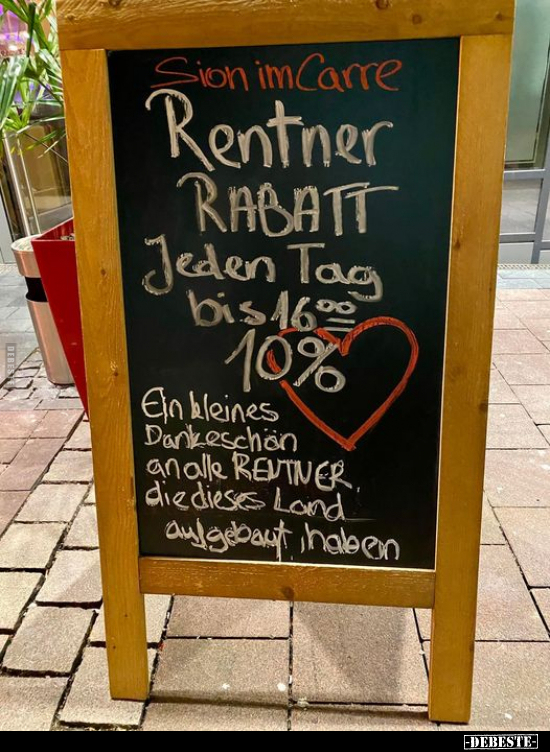 Sion im Carre
Rentner
RABATT
Jeden Tag
bis 16⁰⁰
10%
Ein kleines
Dankeschön
an alle RENTNER,
die dieses Land
aufgebaut haben
-DEBESTE-